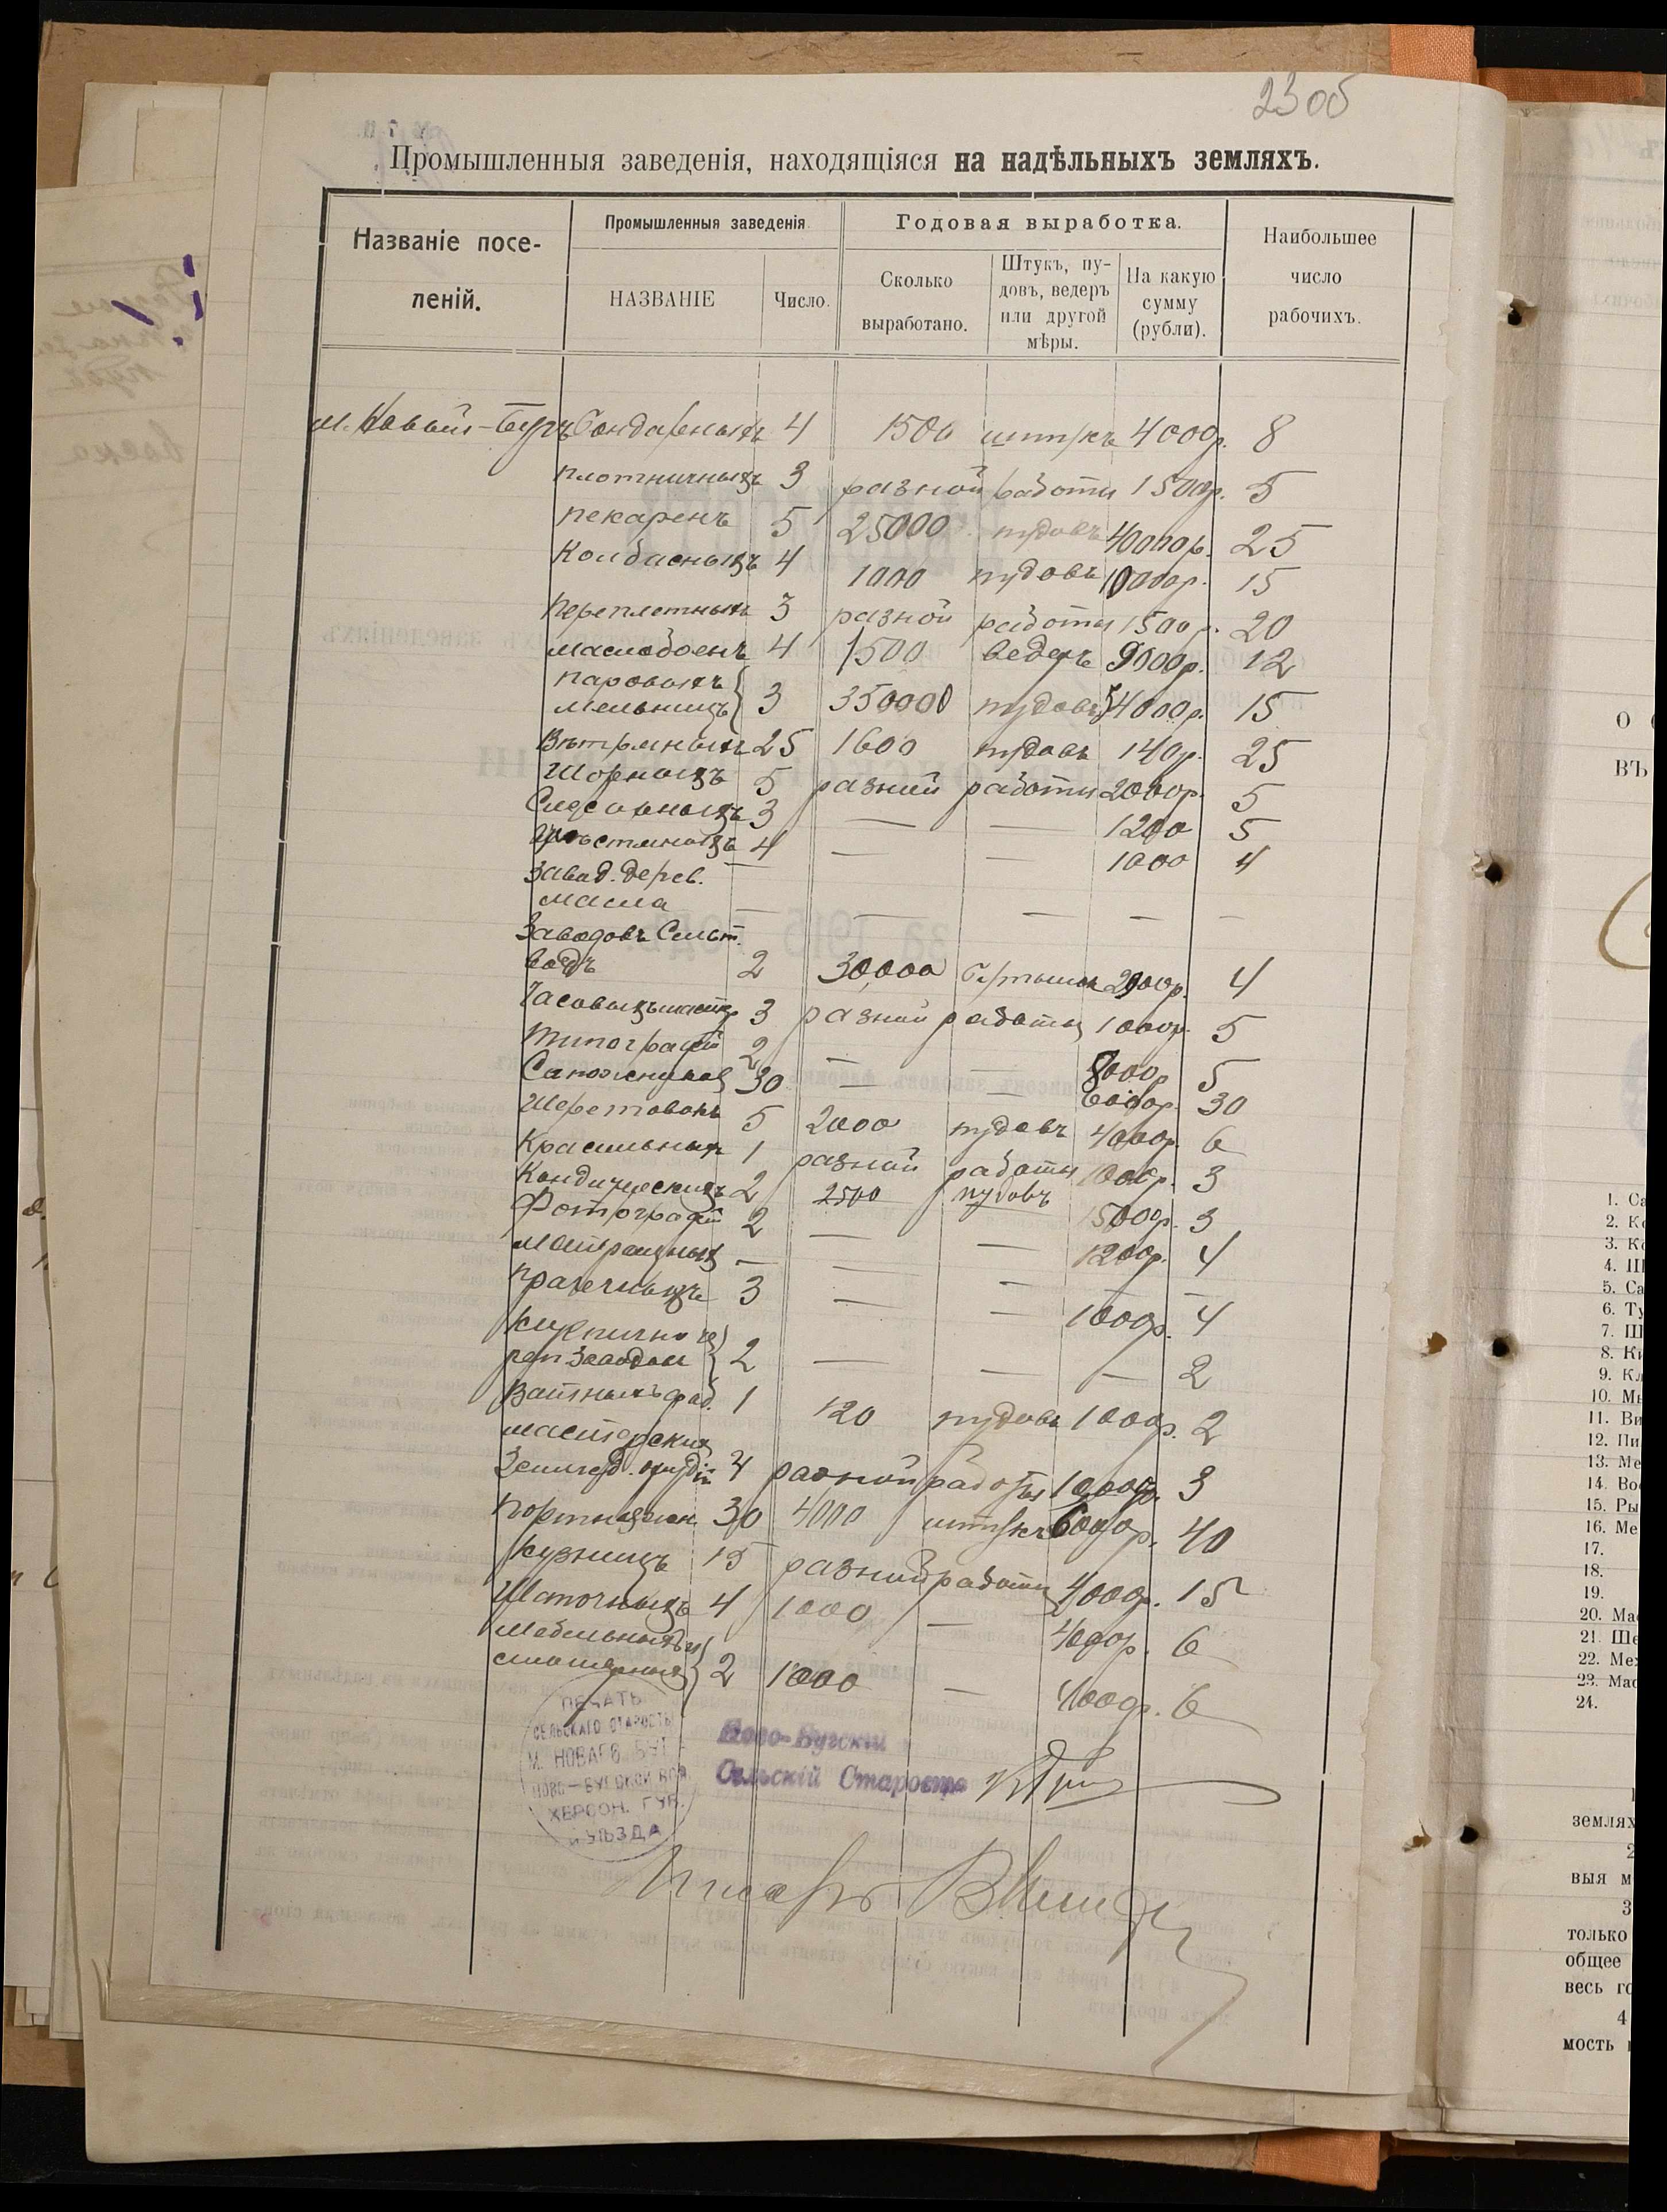 23 об
Промышленныя заведенія, находящіяся на надѣльныхъ земляхъ.
Названіе посе-
леній.
Промышленныя заведенія.
НАЗВАНІЕ
Число.
Годовая выработка.
Сколько
выработано.
Штукъ, пу-
довъ, ведеръ
или другой
мѣры.
На какую
сумму
(рубли).
Наибольшее
число
рабочихъ.
м. Новый-Бугъ Бондарныхъ 4 1500 штукъ 4000р. 8
плотничныхъ 3 разной работы 1500р. 5
пекаренъ 5 25000 пудовъ 40000р. 25
Колбасныхъ 4 1000 пудовъ 10000р. 15
переплетныхъ 3 разной работы 1500р. 20
маслобоенъ 4 1500 ведеръ 9000р. 12
паровыхъ
мельницъ 3 350000 пудовъ 54000р. 15
Вѣтряныхъ 25 1600 пудовъ 140р. 25
Шорныхъ 5 разной работы 2000р. 5
Слесарныхъ 3 — — 1200 5
Жестяныхъ 4 — — 1000 4
Завод. дерев.
масла — — — — —
Заводовъ Сельт.
водъ 2 30,000 бутылокъ 2900р. 4
Часовыхъ маст. 3 разной работы 1000р. 5
Типографій 2 — — 8000р 5
Сапожниковъ 30 — — 6000р. 30
Шерстовокъ 5 2000 пудовъ 4000р. 6
Красильныхъ 1 разной работы 1000р. 3
Кондитерскихъ 2 2500 пудовъ 1500р. 3
Фотографій 2 — — 1200р. 4
Матрацныхъ — — — —
прачечныхъ 3 — — 1000р. 4
Кирпично че
реп Заводовъ 2 — — — 2
Ватныхъ фаб. 1 120 пудовъ 1000р. 2
мастерскихъ
Землед. орудій 4 разной работы 10000р. 3
портняжн. 30 4000 штукъ 6000р. 40
кузницъ 15 разной работы 4000р. 15
Шапочныхъ 4 1000 — 4000р. 6
Мебельныхъ и
столярныхъ 2 1000 — 4000р. 6
ПЕЧАТЬ
СЕЛЬСКАГО СТАРОСТЫ
М. НОВАГО БУГА
НОВО-БУГСКОЙ ВОЛ.
ХЕРСОН. ГУБ.
И УѢЗДА
Ново-Бугскій
Сельскій Староста
Писарь
О
ВЪ
1. Са
2. К
3. К
4. Ш
5. Са
6. Ту
7. Ш
8. Ки
9. Кл
10. Мы
11. Ви
12. Пи
13. Ме
14. Во
15. Ры
16. Ме
17.
18.
19.
20. Мас
21. Ше
22. Мех
23. Мас
24.
землях
2
выя м
3
только
общее
весь го
4
мость